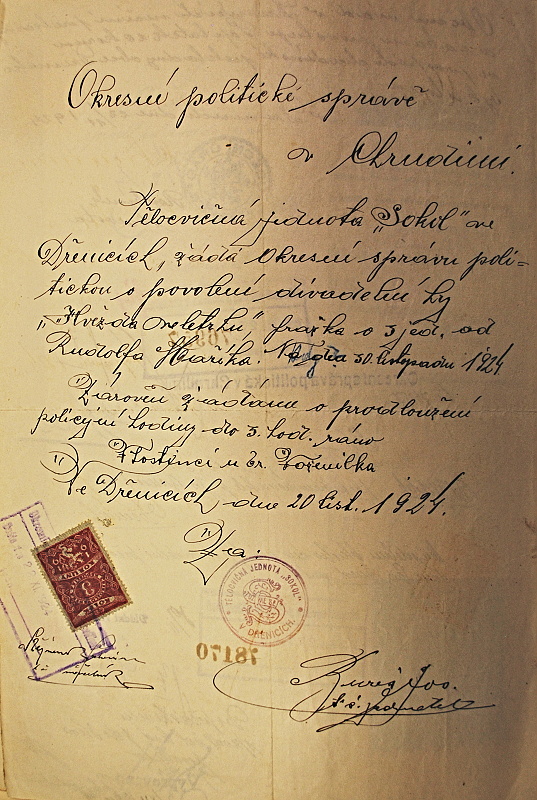 Okresní politické správě
v Chrudimi.
Tělocvičná jednota „Sokol" ve
Dřenicích, žádá Okresní správu poli-
tickou o povolení divadelní hry
„Hvězda veletrhu" fraška o 3 jed. od
Rudolfa Mařika. Na dna 30. listopadu 1924
Zároveň žádáme o prodloužení
policejní hodiny do 3. hod. ráno
V hostinci u br. Vořenilka
Ve Dřenicích dne 20 list. 1924.
Za:
TĚLOCVIČNÁ JEDNOTA „SOKOL"
V DŘENICÍCH.
8
70178
t. č. jednatel